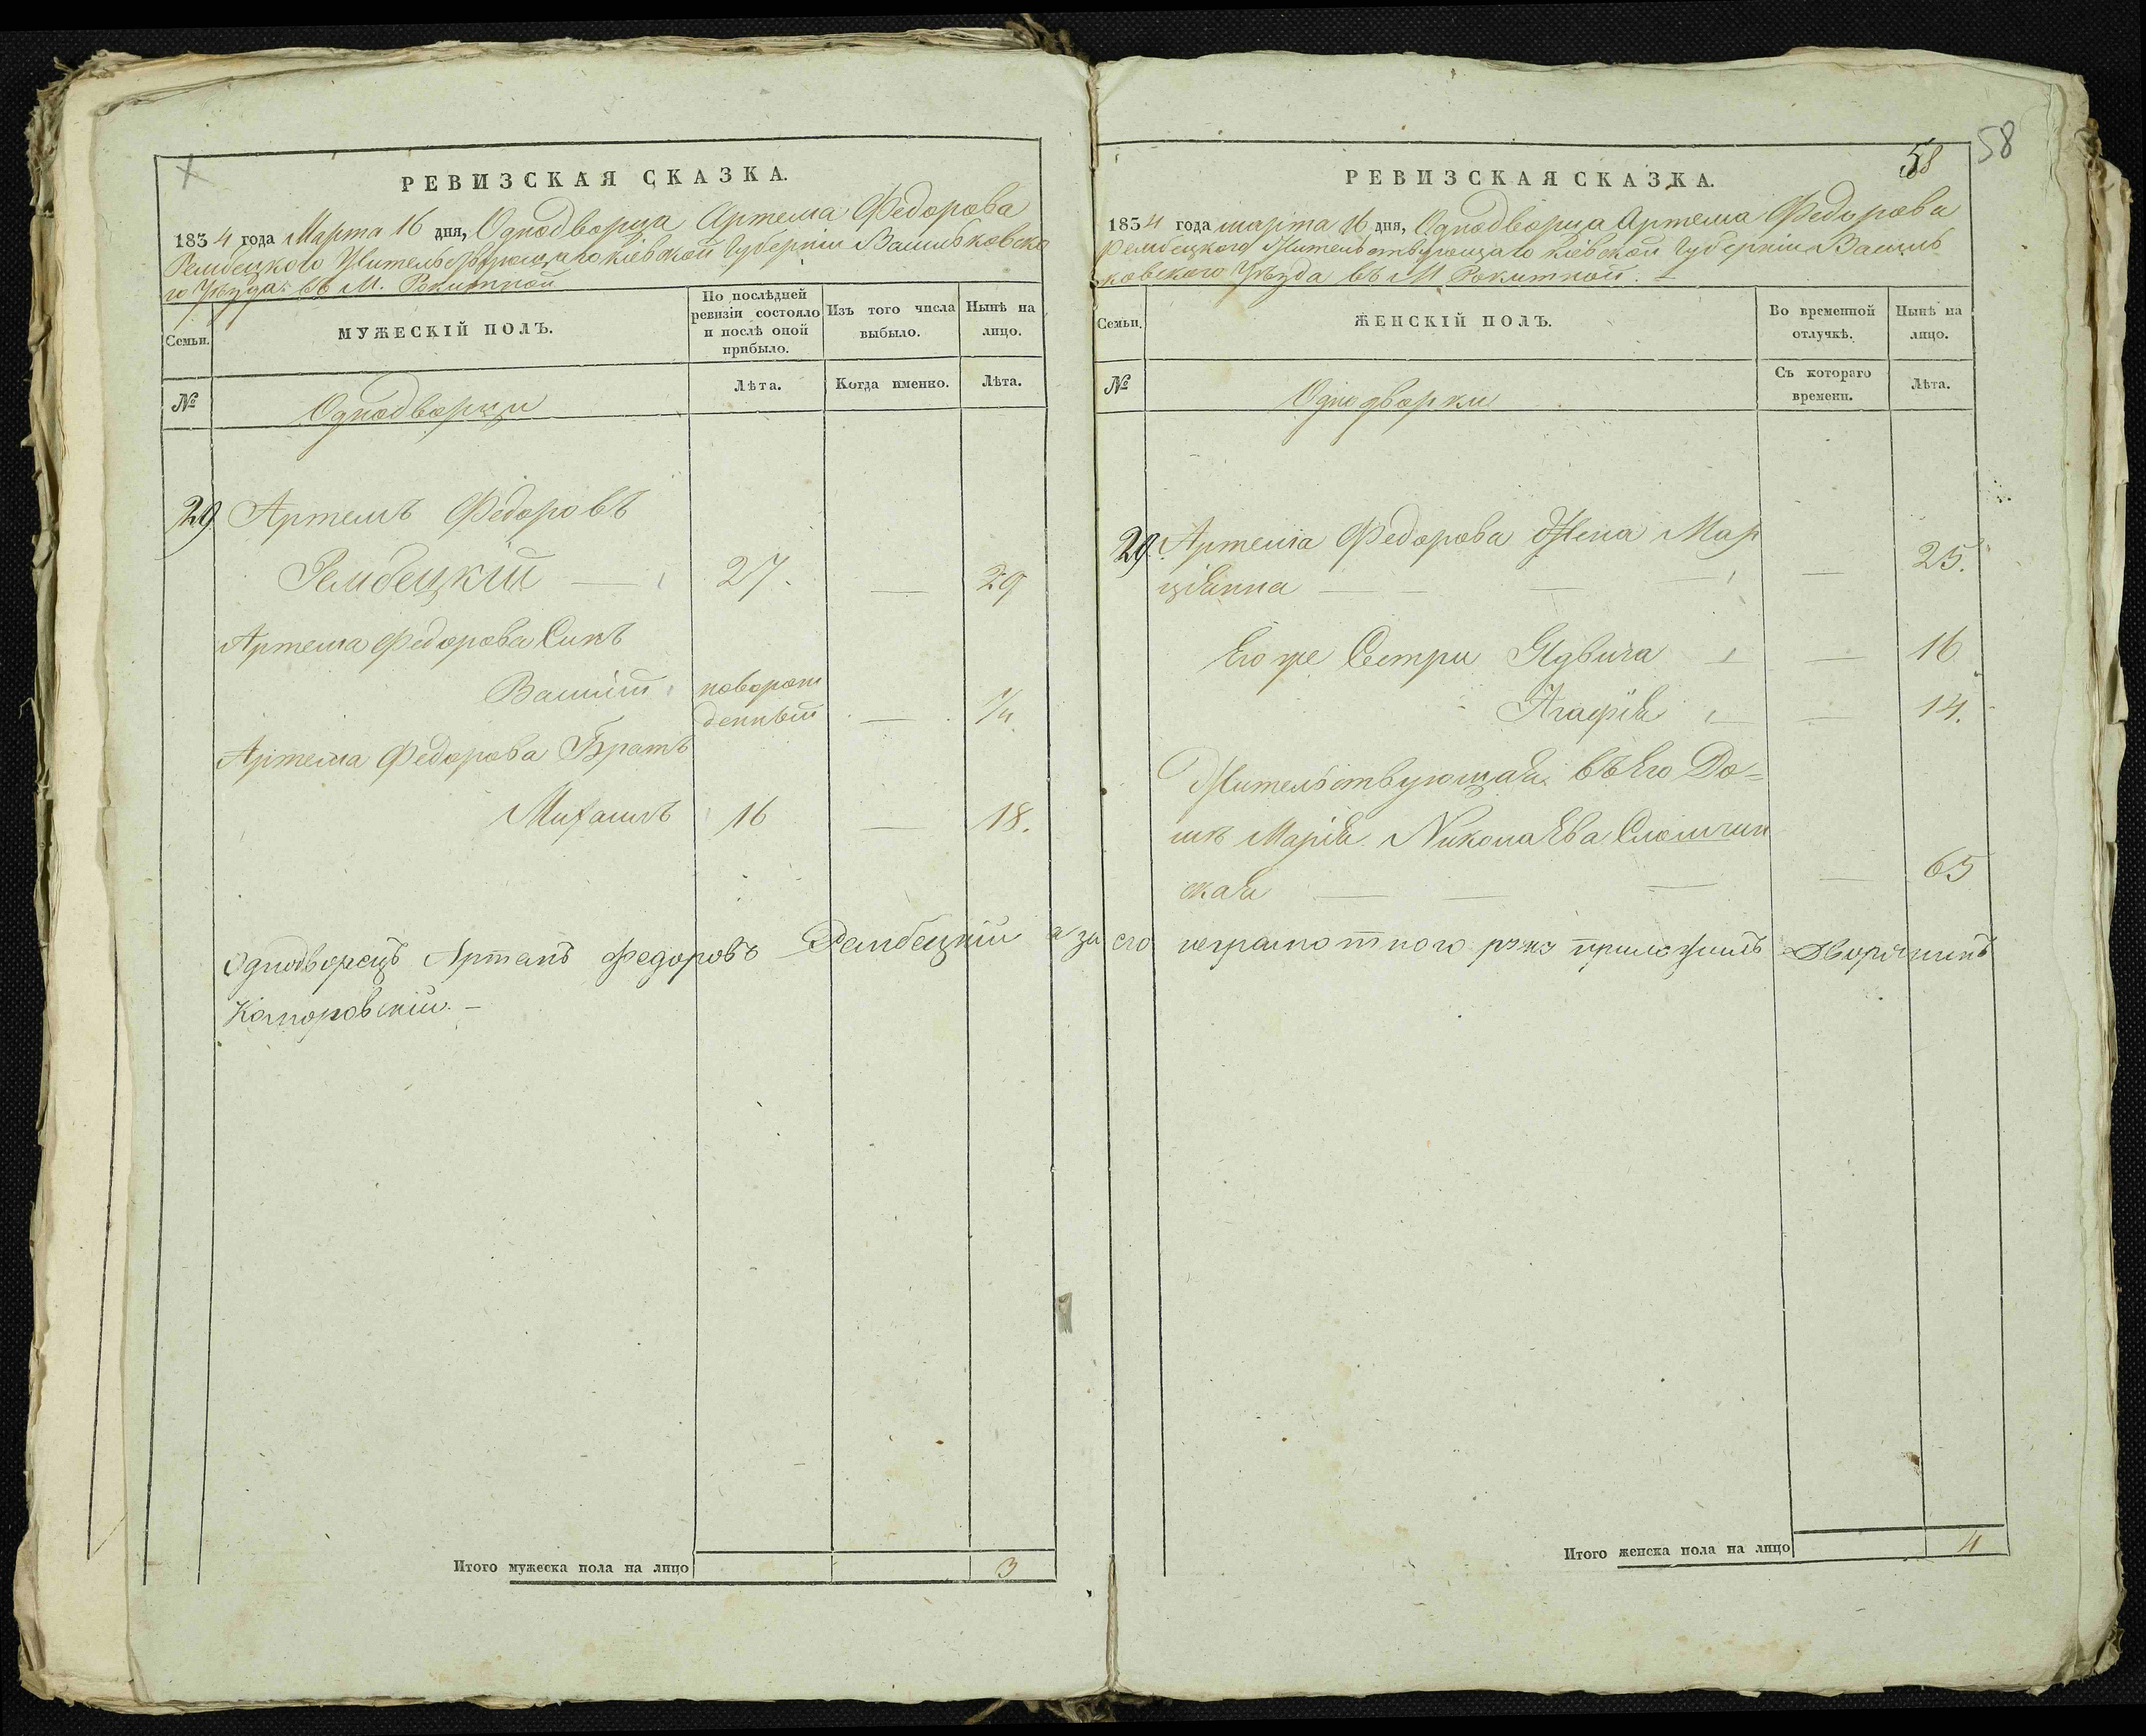 РЕВИЗСКАЯ СКАЗКА.
1834 года Марта 16 дня, Однодворца Артема Федорова
Рембецкого Жительствующаго Кіевской Губерніи Васильковско
го Уѣзда въ М. Рокитной
Семьи.
МУЖЕСКІЙ ПОЛЪ.
По послѣдней ревизіи состояло и послѣ оной прибыло.
Изъ того числа выбыло.
Нынѣ на лицо.
№
Однодворцы
Лѣта.
Когда именно.
Лѣта.
29 Артемъ Федоровъ
Рембецкій — 27. — 29
Артема Федорова Синъ
новорож
денный — 1/4
Артема Федорова Братъ
Михаилъ 16 — 18.
Однодворецъ Артемъ Федоровъ Рембецкий а за его неграмотного приложилъ Дворянинъ
Коморовский. –
Итого мужеска пола на лицо 3
58
58
РЕВИЗСКАЯ СКАЗКА.
1834 года марта 16 дня, Однодворца Артема Федорова
Рембецкого Жительствующаго Кіевской Губерніи Василь
ковского Уѣзда въ М Рокитной. –
Семьи.
ЖЕНСКІЙ ПОЛЪ.
Во временной отлучкѣ.
Нынѣ на лицо.
№
Однодворки
Съ котораго времени.
Лѣта.
29. Артема Федорова Жена Мар
ціянна — — 25.
Его же Сестри Ядвига — — 16
Агафія — — 14.
Жительствующая въ Его До=
мѣ Марія Николаева
ская — — 65
Итого женска пола на лицо 4